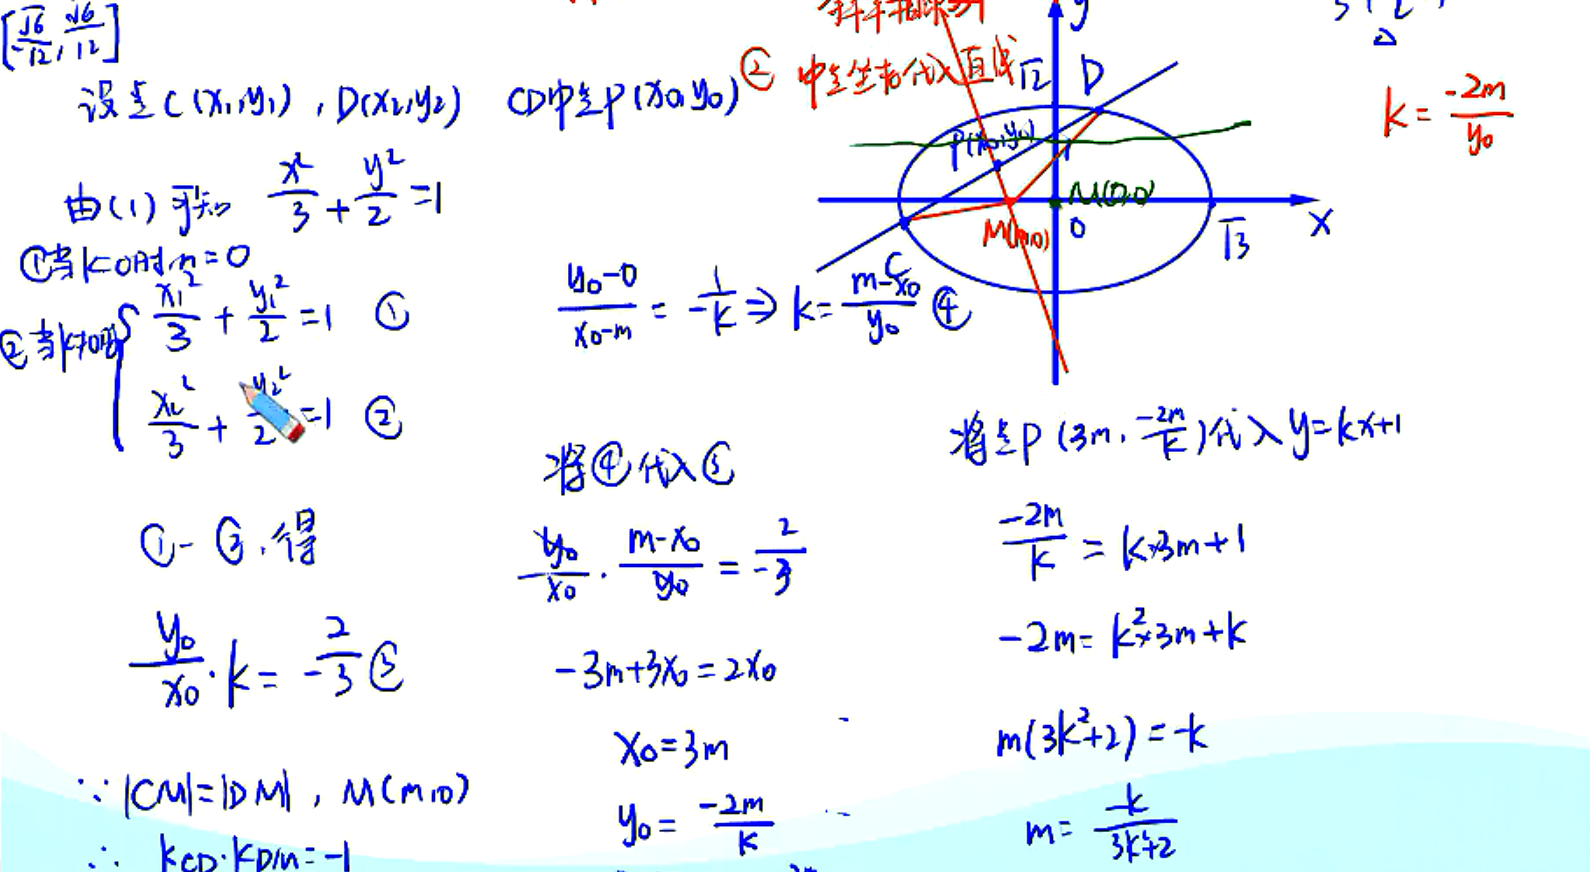 [-√6/12, √6/12]
设点C(x₁,y₁), D(x₂,y₂) CD中点P(x₀,y₀)
由(1)可知 x²/3 + y²/2 = 1
①当k=0时,m=0
②当k≠0时
x₁²/3 + y₁²/2 = 1 ①
x₂²/3 + y₂²/2 = 1 ②
①-②,得
y₀/x₀ · k = 2/-3 ③
∵ |CM|=|DM|, M(m,0)
∴ kCD·kPM=-1
(y₀-0)/(x₀-m) = 1/-k ⇒ k = (m-x₀)/y₀ ④
将④代入③
y₀/x₀ · (m-x₀)/y₀ = 2/-3
-3m+3x₀=2x₀
x₀=3m
y₀= -2m/k
② 中点坐标代入直线
y
√2
D
P(x₀,y₀)
M(0,0)
M(m,0)
0
√3
x
C
k = -2m/y₀
将点P(3m, -2m/k)代入y=kx+1
-2m/k = k×3m+1
-2m= k²×3m+k
m(3k²+2)=-k
m= -k/(3k²+2)